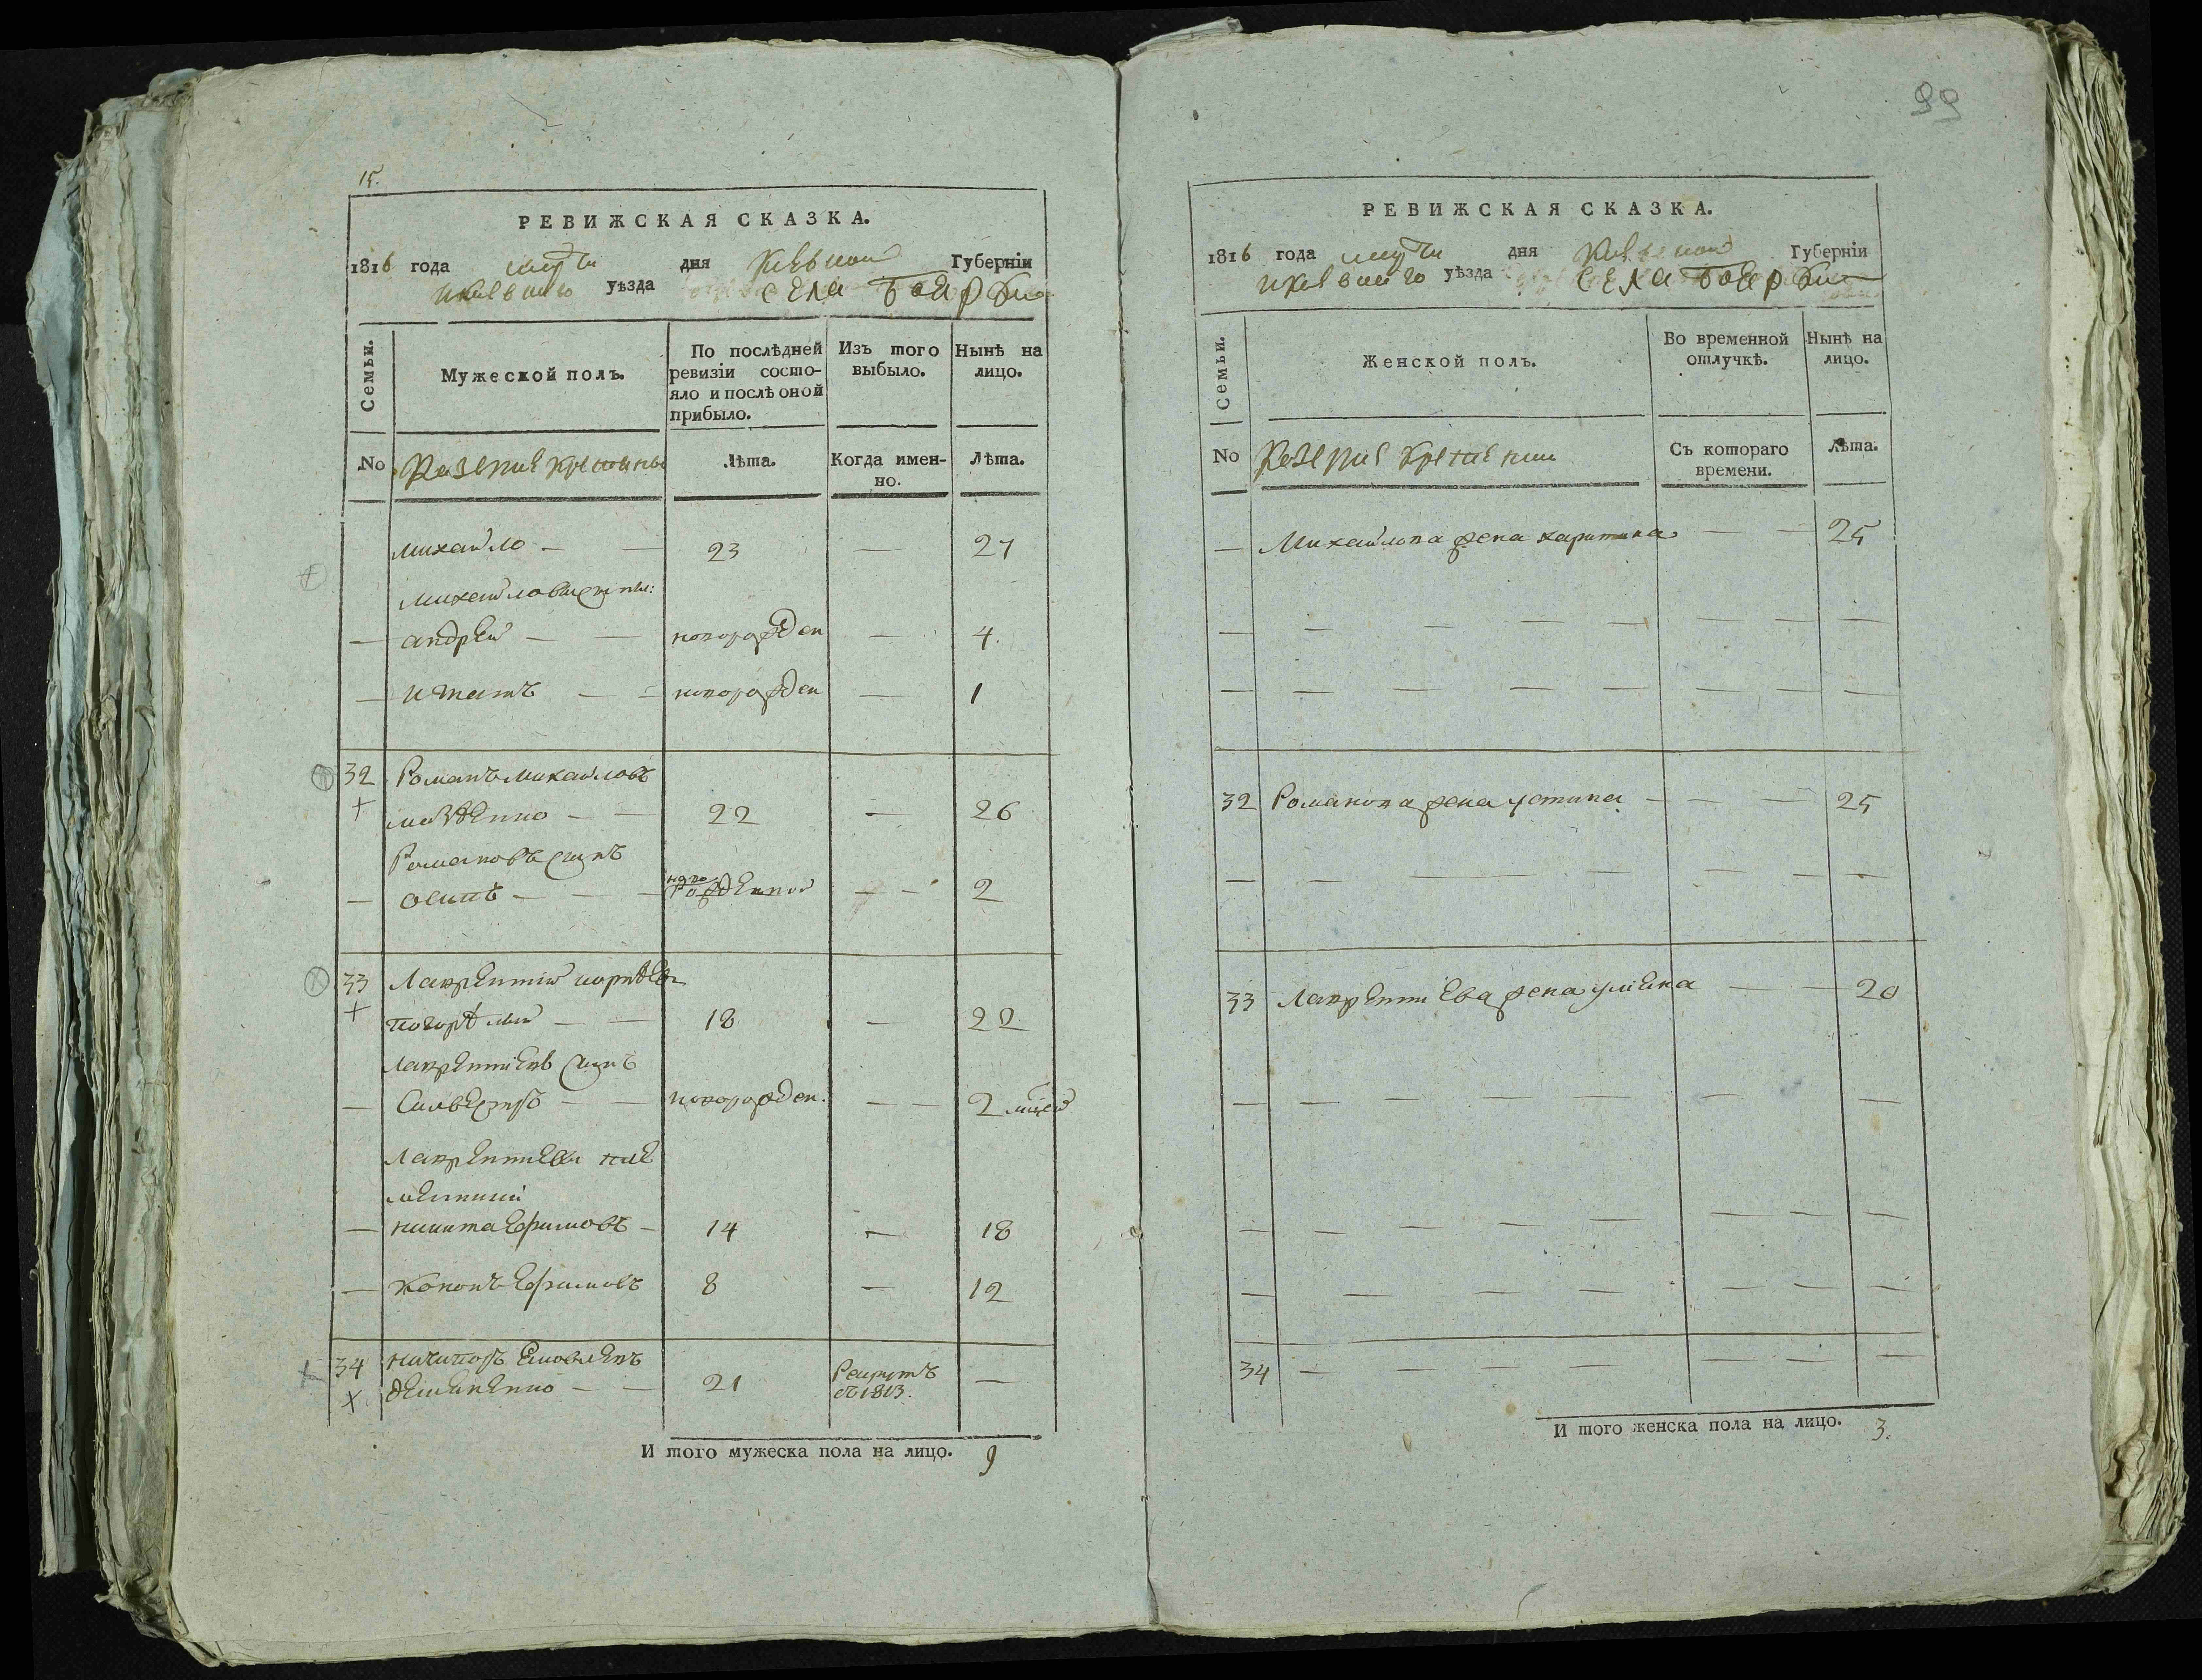 15.
РЕВИЖСКАЯ СКАЗКА.
1816 года дня Киевской Губернїи
Киевского уѣзда села Боярки
Семьи.
Мужеской полъ.
По послѣдней ревизїи состо-
яло и послѣ оной
прибыло.
Изъ того
выбыло.
Нынѣ на
лицо.
No Казенне крестяны
Лѣта.
Когда имен-
но.
Лѣта.
Михайло — — 23 — 27
Михайловы сины:
— андрей — — новорожден — 4
— Игнатъ — — новорожден — 1
32 Романъ Михайловъ
— — 22 — 26
Романовъ синъ
— осипъ — — — ново
рожденной — — 2
33 Лаврентий
погорѣлий — — 18 — 22
Лаврентиевъ синъ
— Силвестръ — — новорожден. — — 2 мцей
Лаврентиеви пле
менники
— никита Ефимовъ — 14 — 18
— Кононъ Ефимовъ 8 — 12
34 ничипоръ Яковлевъ
— — 21 Рекрутъ
въ 1813. —
И того мужеска пола на лицо. 9
99
РЕВИЖСКАЯ СКАЗКА.
1816 года дня Киевской Губернїи
Киевского уѣзда села Боярки
Семьи.
Женской полъ.
Во временной
отлучкѣ.
Нынѣ на
лицо.
No Казенне
Съ котораго
времени.
Лѣта.
— Михайлова жена харитина — — 25
32 Романова жена устина — — — 25
33 Лаврентиева жена улiяна — — 20
34 — — — — — — —
И того женска пола на лицо. 3.